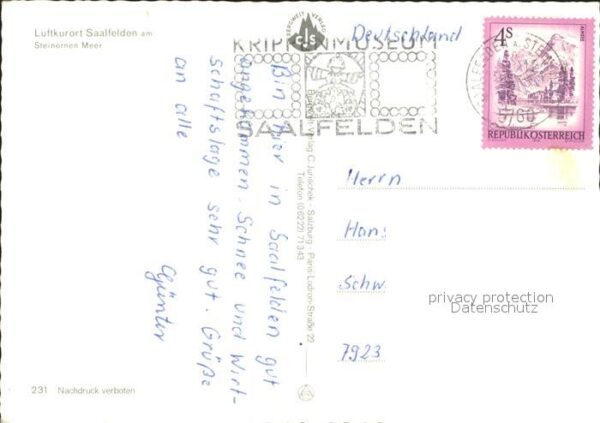 Luftkurort Saalfelden am
Steinernen Meer
Deutschland
BERGWELT VERLAG
cJs
KRIPPENMUSEUM
SAALFELDEN
9760
4s
REPUBLIK ÖSTERREICH
Bin hier in Saalfelden gut
angekommen. Schnee und Wirt-
schaftslage sehr gut. Grüße
an alle
Günter
Verlag C. Jurischek - Salzburg - Paris-Lodron-Straße 22
Telefon (0 62 22) 71 3 43
Herrn
Hans
Schw
7923
privacy protection
Datenschutz
231 Nachdruck verboten